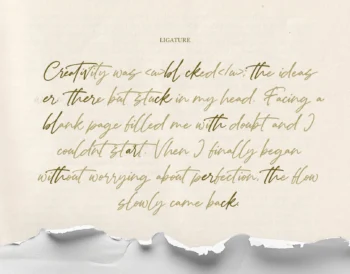 LIGATURE
Creativity was <a>bl cked</a>; the ideas
er there but stuck in my head. Facing a
blank page filled me with doubt and I
couldnt start When I finally began
without worrying about perfection, the flow
slowly came back.